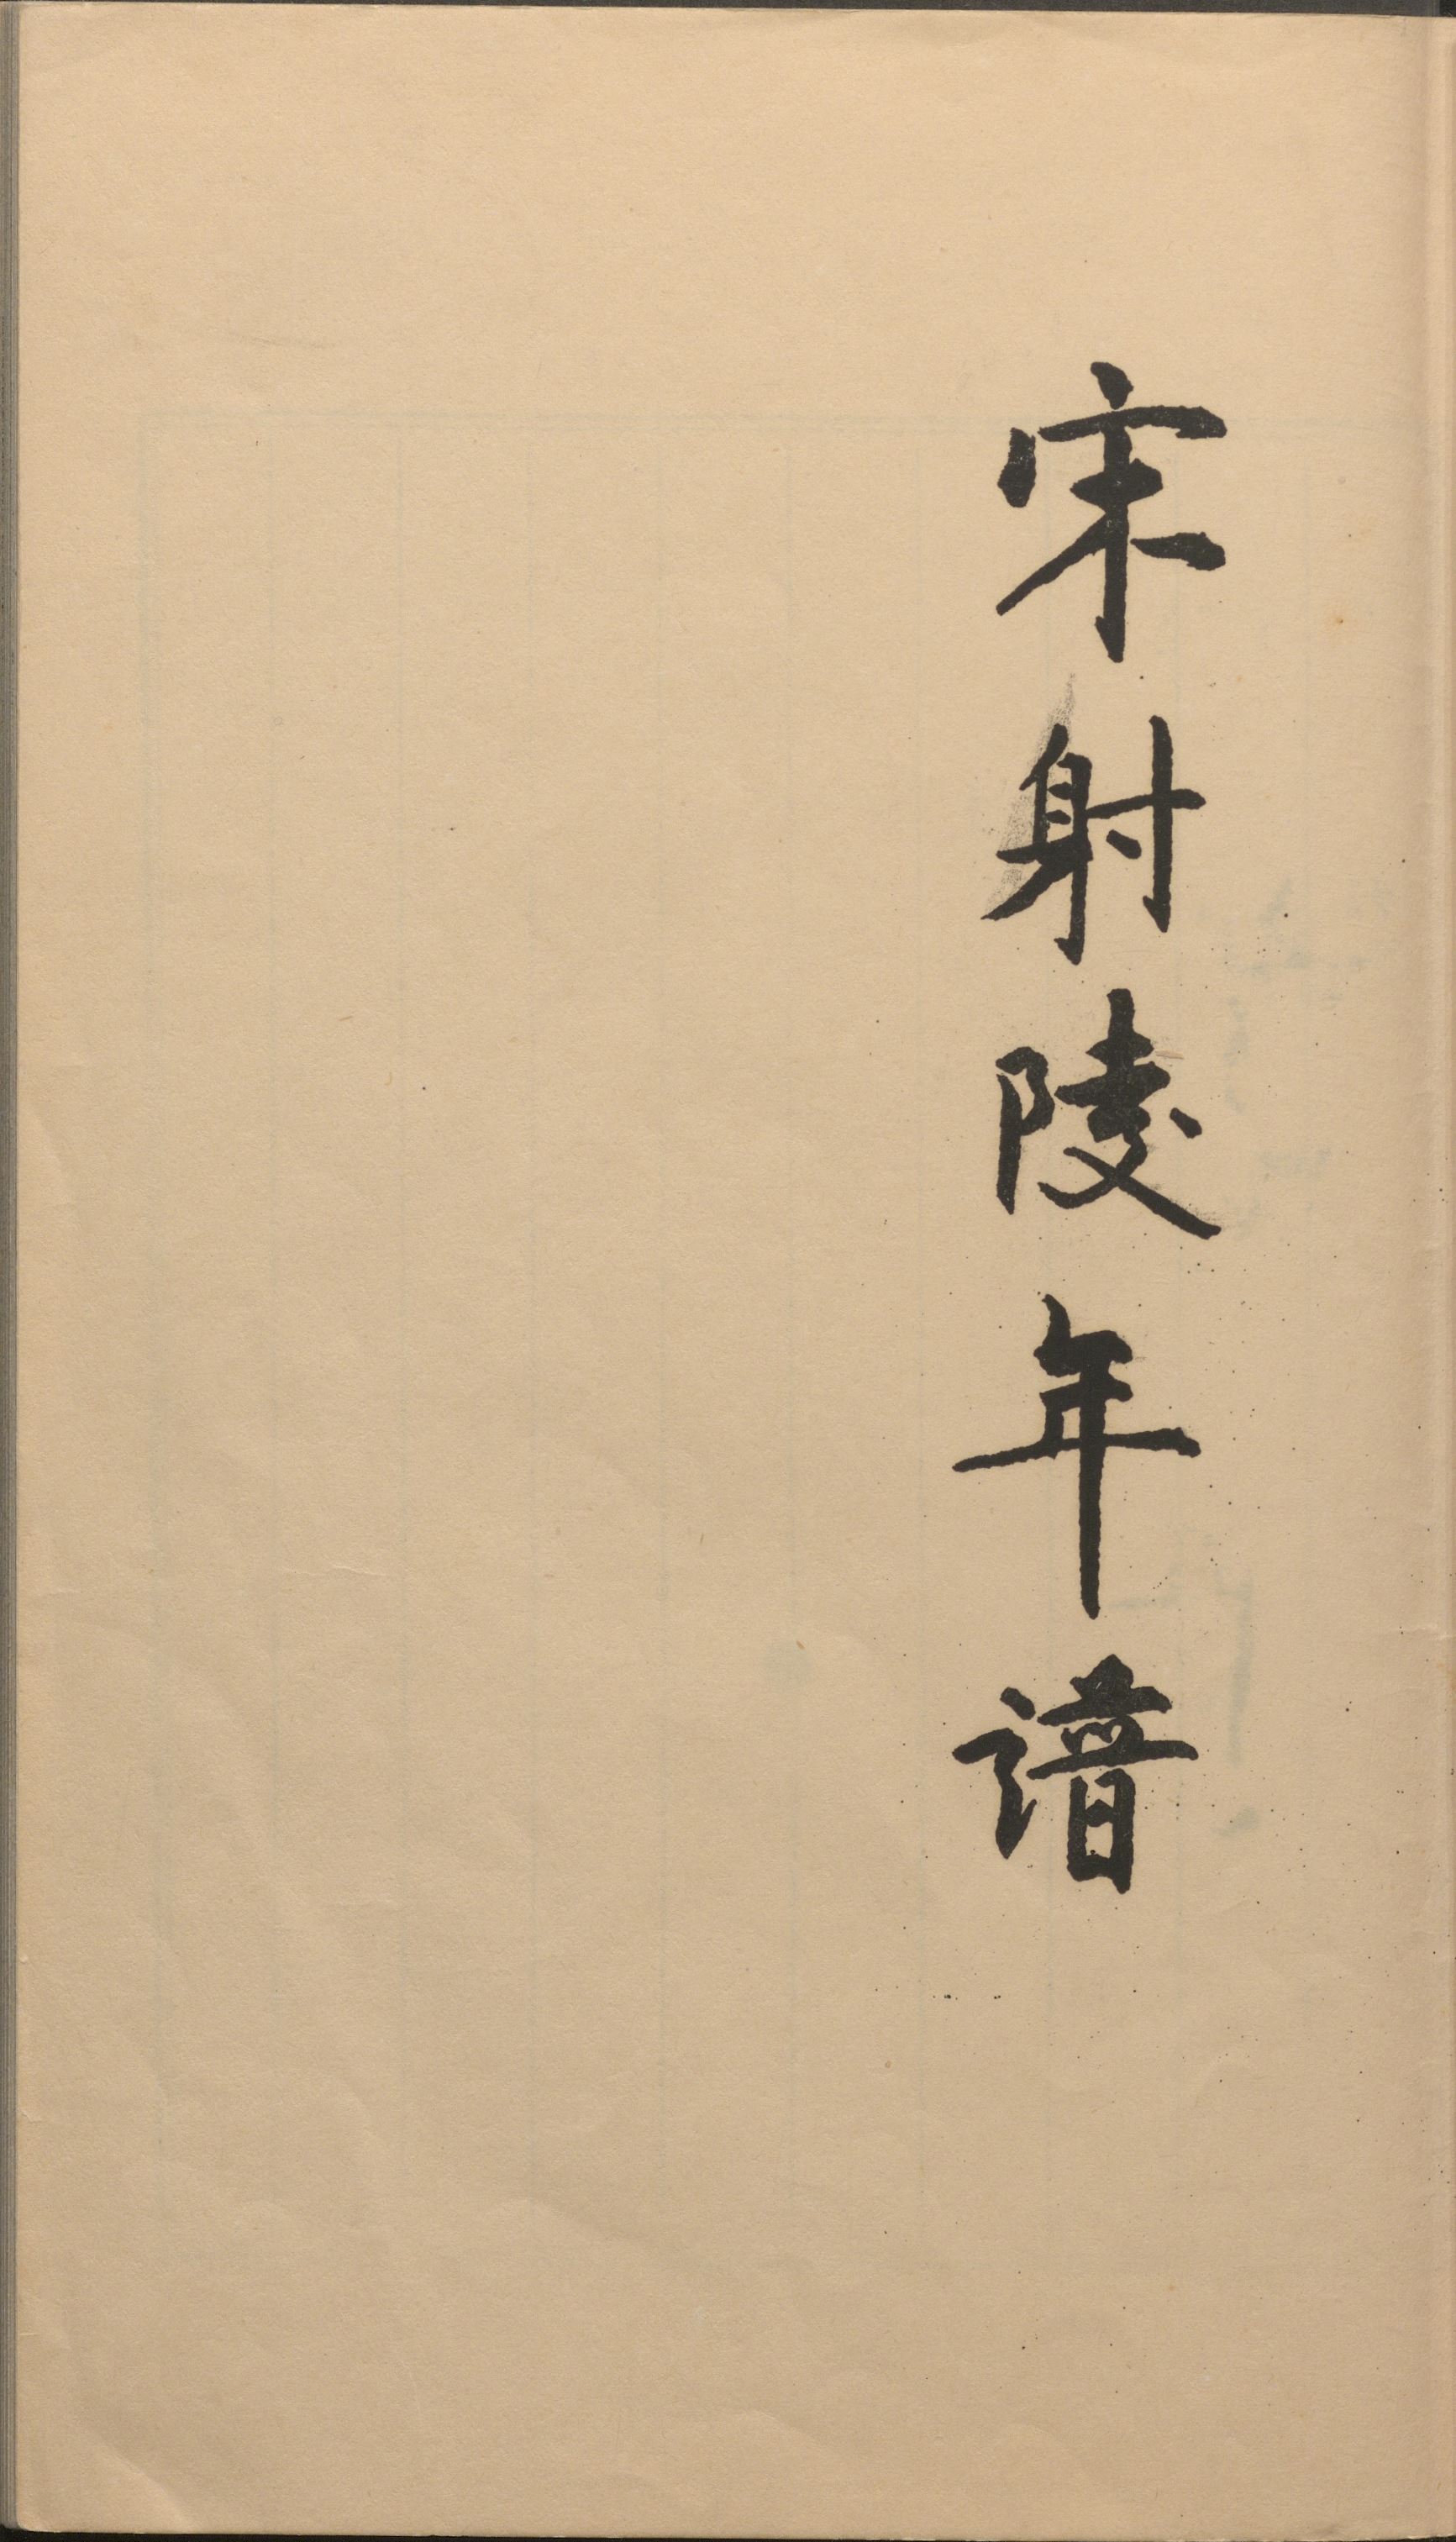 宋射陵年譜